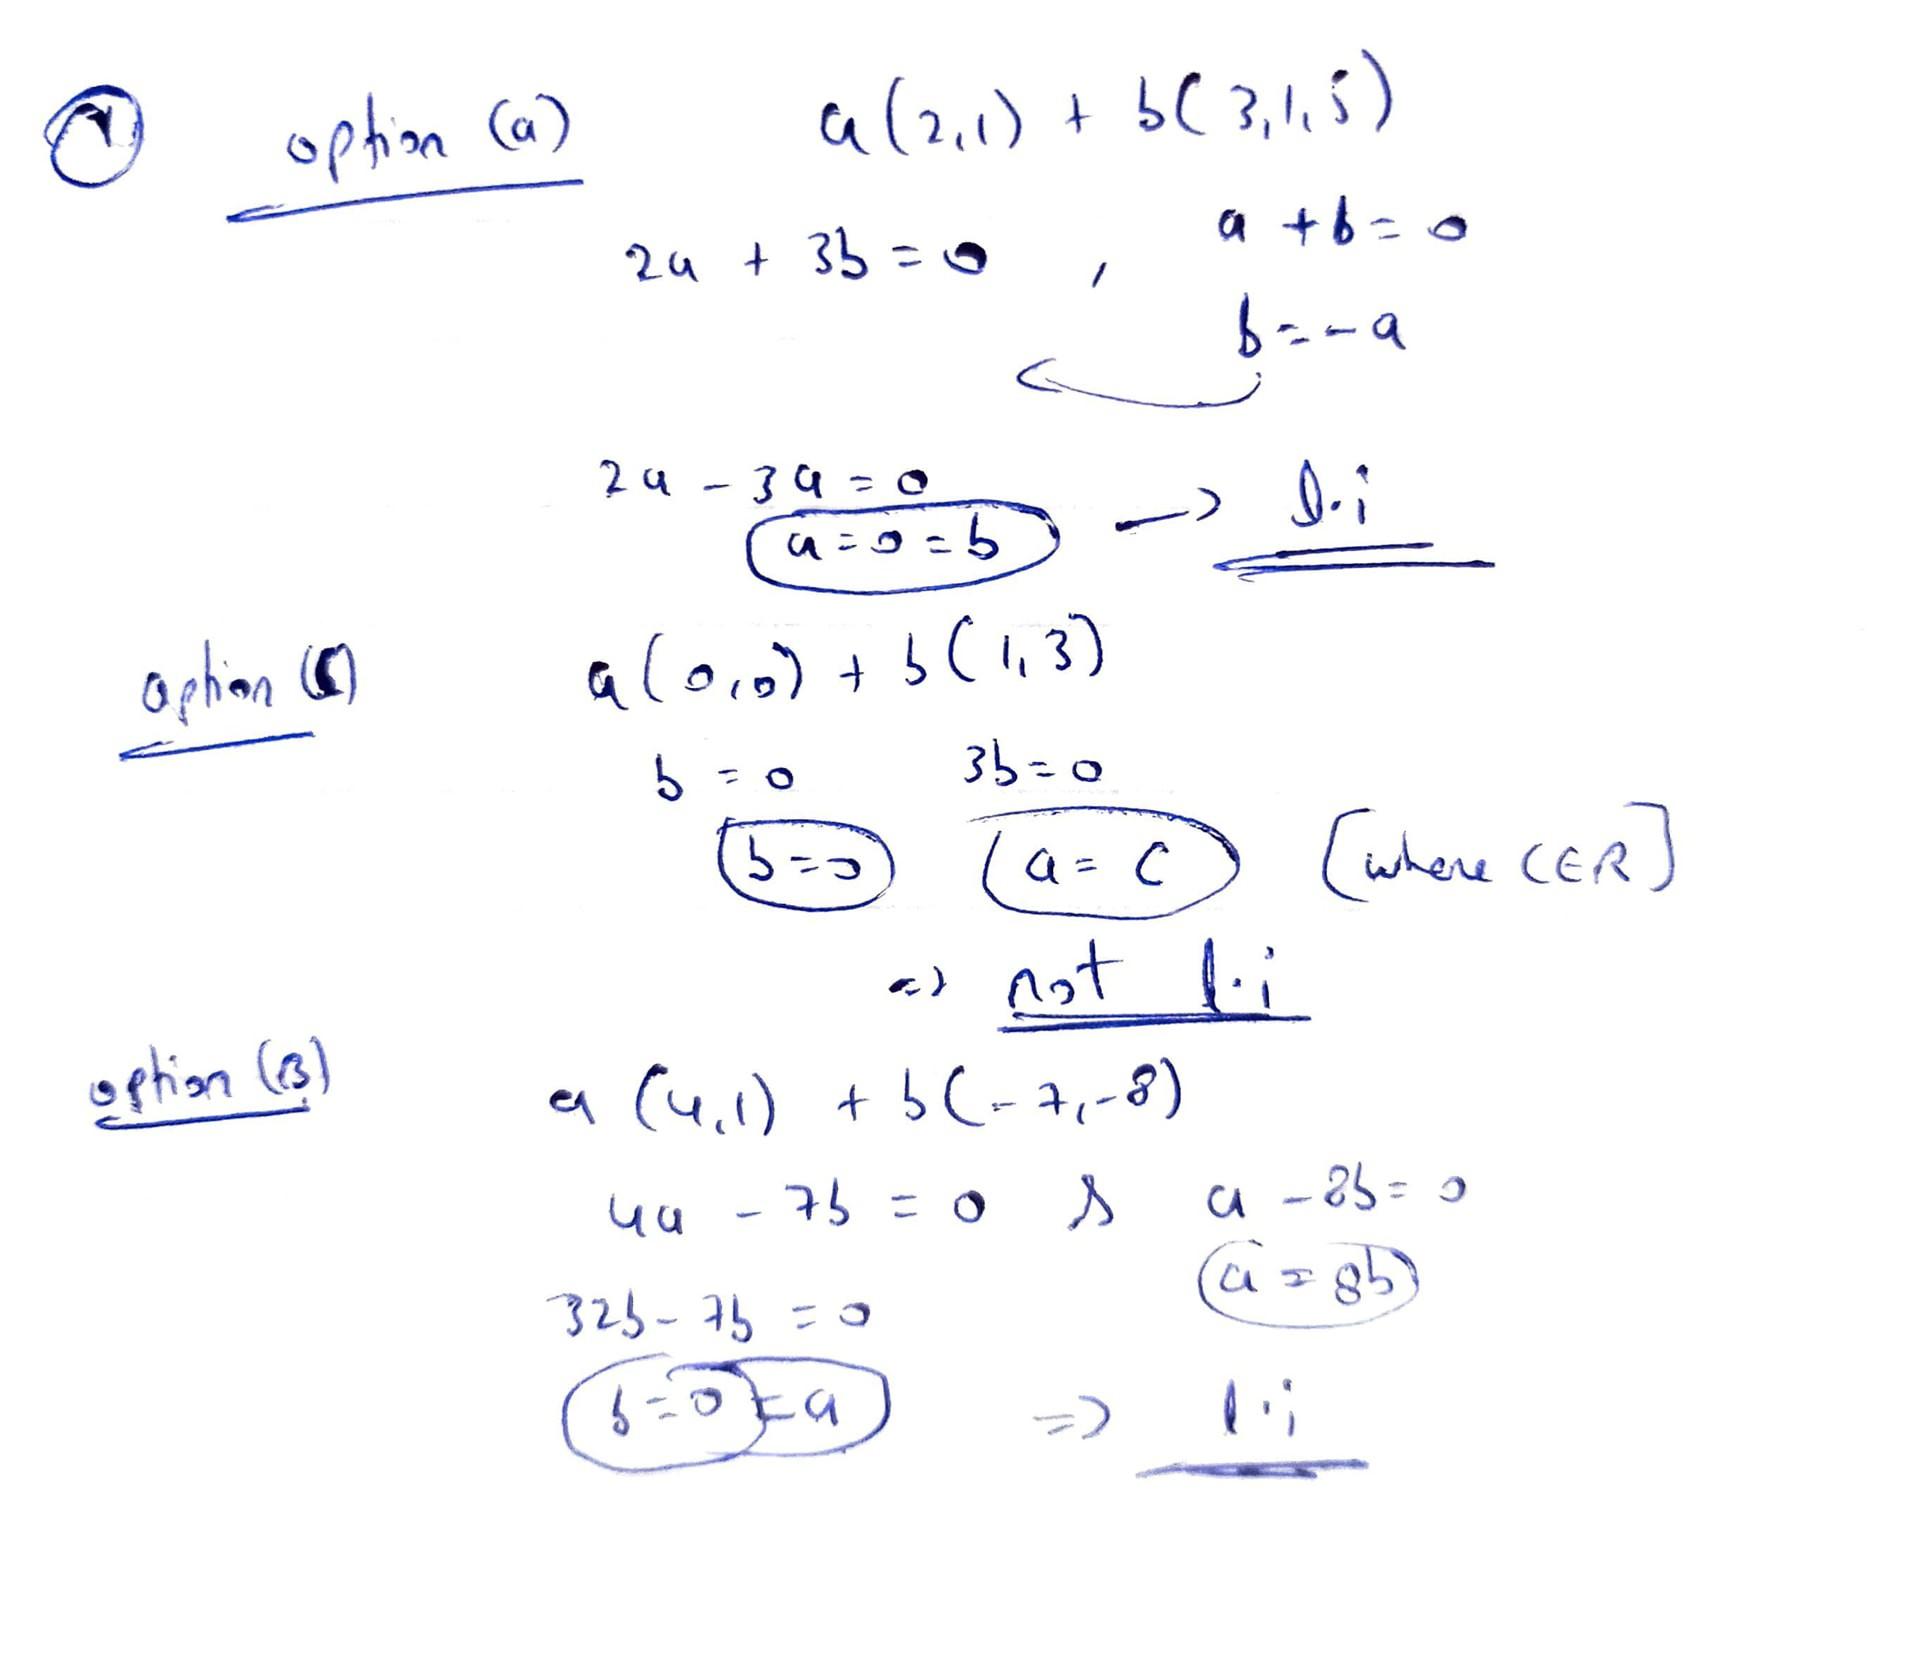 option (a) a(2,1) + b(3,1,5)
2a + 3b = 0 , a + b = 0
b = -a
2a - 3a = 0
a = 0 = b → l.i
option (C) a(0,0) + b(1,3)
b = 0 3b = 0
b = 0 a = C [where C∈R]
=> not l.i
option (B) a(4,1) + b(-7,-8)
4a - 7b = 0 & a - 8b = 0
a = 8b
32b - 7b = 0
b = 0 = a => l.i